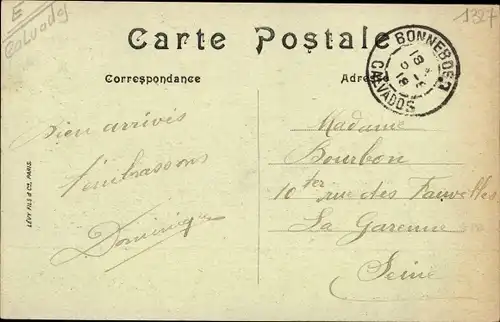 E
Calvados
1327
Carte Postale
Correspondance
Adresse
BONNEBOSQ
CALVADOS
18
18
Bien arrivés
t'embrassons
Dominique
Madame
Bourbon
10 ter rue des Fauvettes
La Garenne
Seine
LÉVY FILS & Cie, PARIS